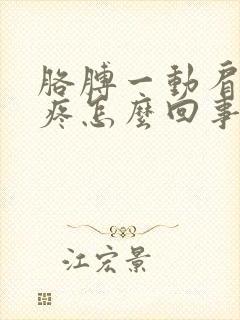 胳膊一動肩
疼怎麼回事
江宏景